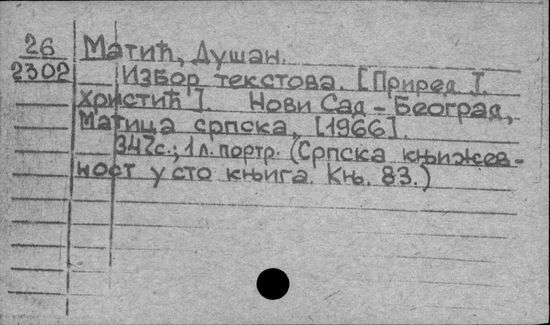 26
2302
Матић, Душан.
Избор текстова. [Приред. Ј.
Христић]. Нови Сад - Београд,
Матица српска, [1966].
347с.; 1 л. портр. (Српска књижев-
ност у сто књига. Књ. 83.)